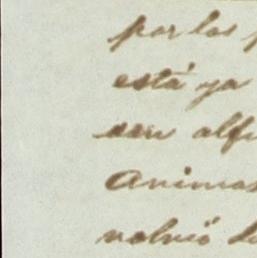 por los
está ya
alf
Animas
volvió